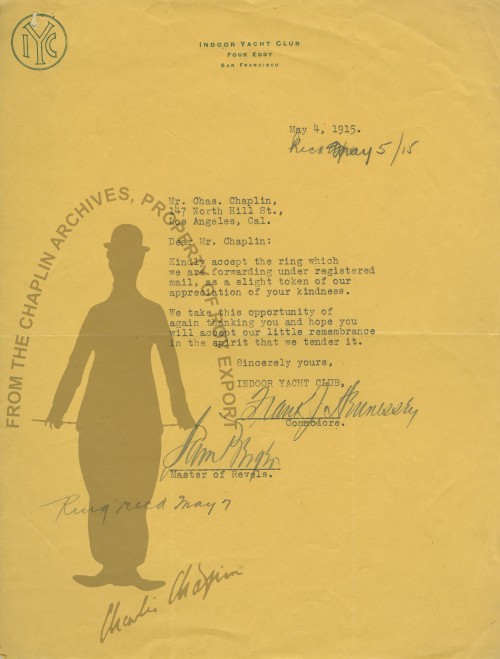 IYC
INDOOR YACHT CLUB
FOUR EDDY
SAN FRANCISCO
May 4, 1915.
Recd May 5/15
Mr. Chas. Chaplin,
147 North Hill St.,
Los Angeles, Cal.
Dear Mr. Chaplin:
Kindly accept the ring which
we are forwarding under registered
mail, as a slight token of our
appreciation of your kindness.
We take this opportunity of
again thanking you and hope you
will accept our little remembrance
in the spirit that we tender it.
Sincerely yours,
INDOOR YACHT CLUB,
Frank J.
Commodore.
Sam
Master of Revels.
Ring recd May 7
Charlie Chaplin
FROM THE CHAPLIN ARCHIVES, PROPERTY OF ROY EXPORT